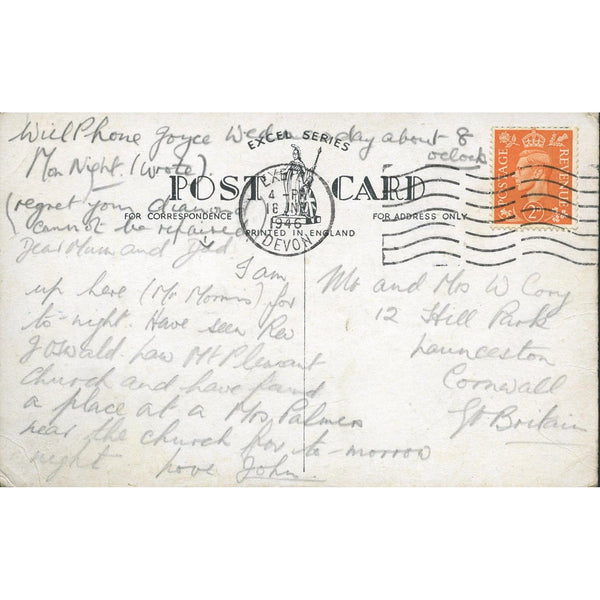 Will Phone Joyce Wednesday about 8
oclock
Mon Night. (wrote).
EXCEL SERIES
POST CARD
(regret your
cannot be repaired)
FOR CORRESPONDENCE
FOR ADDRESS ONLY
PRINTED IN ENGLAND
EXETER
4 - PM
18 JNE
1946
DEVON
POSTAGE
REVENUE
2D
Dear Mum and Dad.
I am
up here (Mr Morris) for
to-night. Have seen Rev
J Oswald. Saw Mt Pleasant
Church and have found
a place at a Mrs Palmers
near the church for to-morrow
night love John.
Mr and Mrs W Cory
12 Hill Park
Launceston
Cornwall
Gt Britain